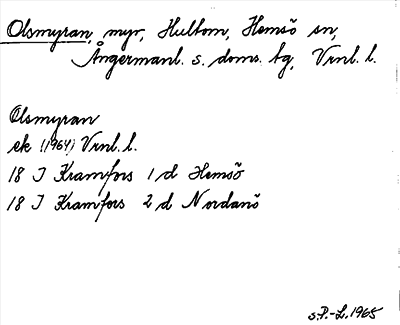 Olsmyran, myr, Hultom, Hemsö sn,
Ångermanl. s. doms. tg, Vrnl. l.
Olsmyran
ek (1964) Vrnl. l.
18 I Kramfors 1 d Hemsö
18 I Kramfors 2 d Nordanö
S.P.-L. 1965